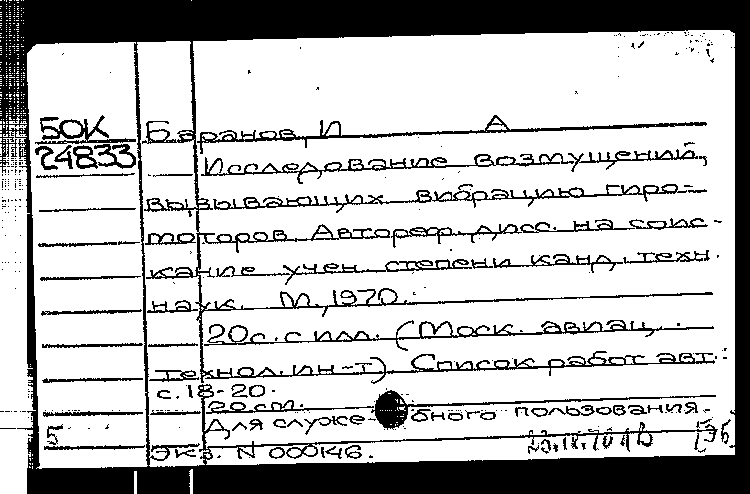 БОК
24833
Баранов, И А
Исследование возмущений,
вызывающих вибрацию гиро-
моторов. Автореф. дисс. на соис-
кание учен. степени канд. техн.
наук. М., 1970.
20с. с илл. (Моск. авиац.
технол. ин-т). Список работ авт.:
с. 18-20.
20 см.
Для служебного пользования.
5
Экз. N 000146.